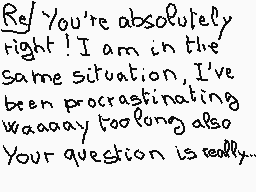 Re/ You're absolutely
right! I am in the
same situation, I've
been procrastinating
waaaay too long also
Your question is really...